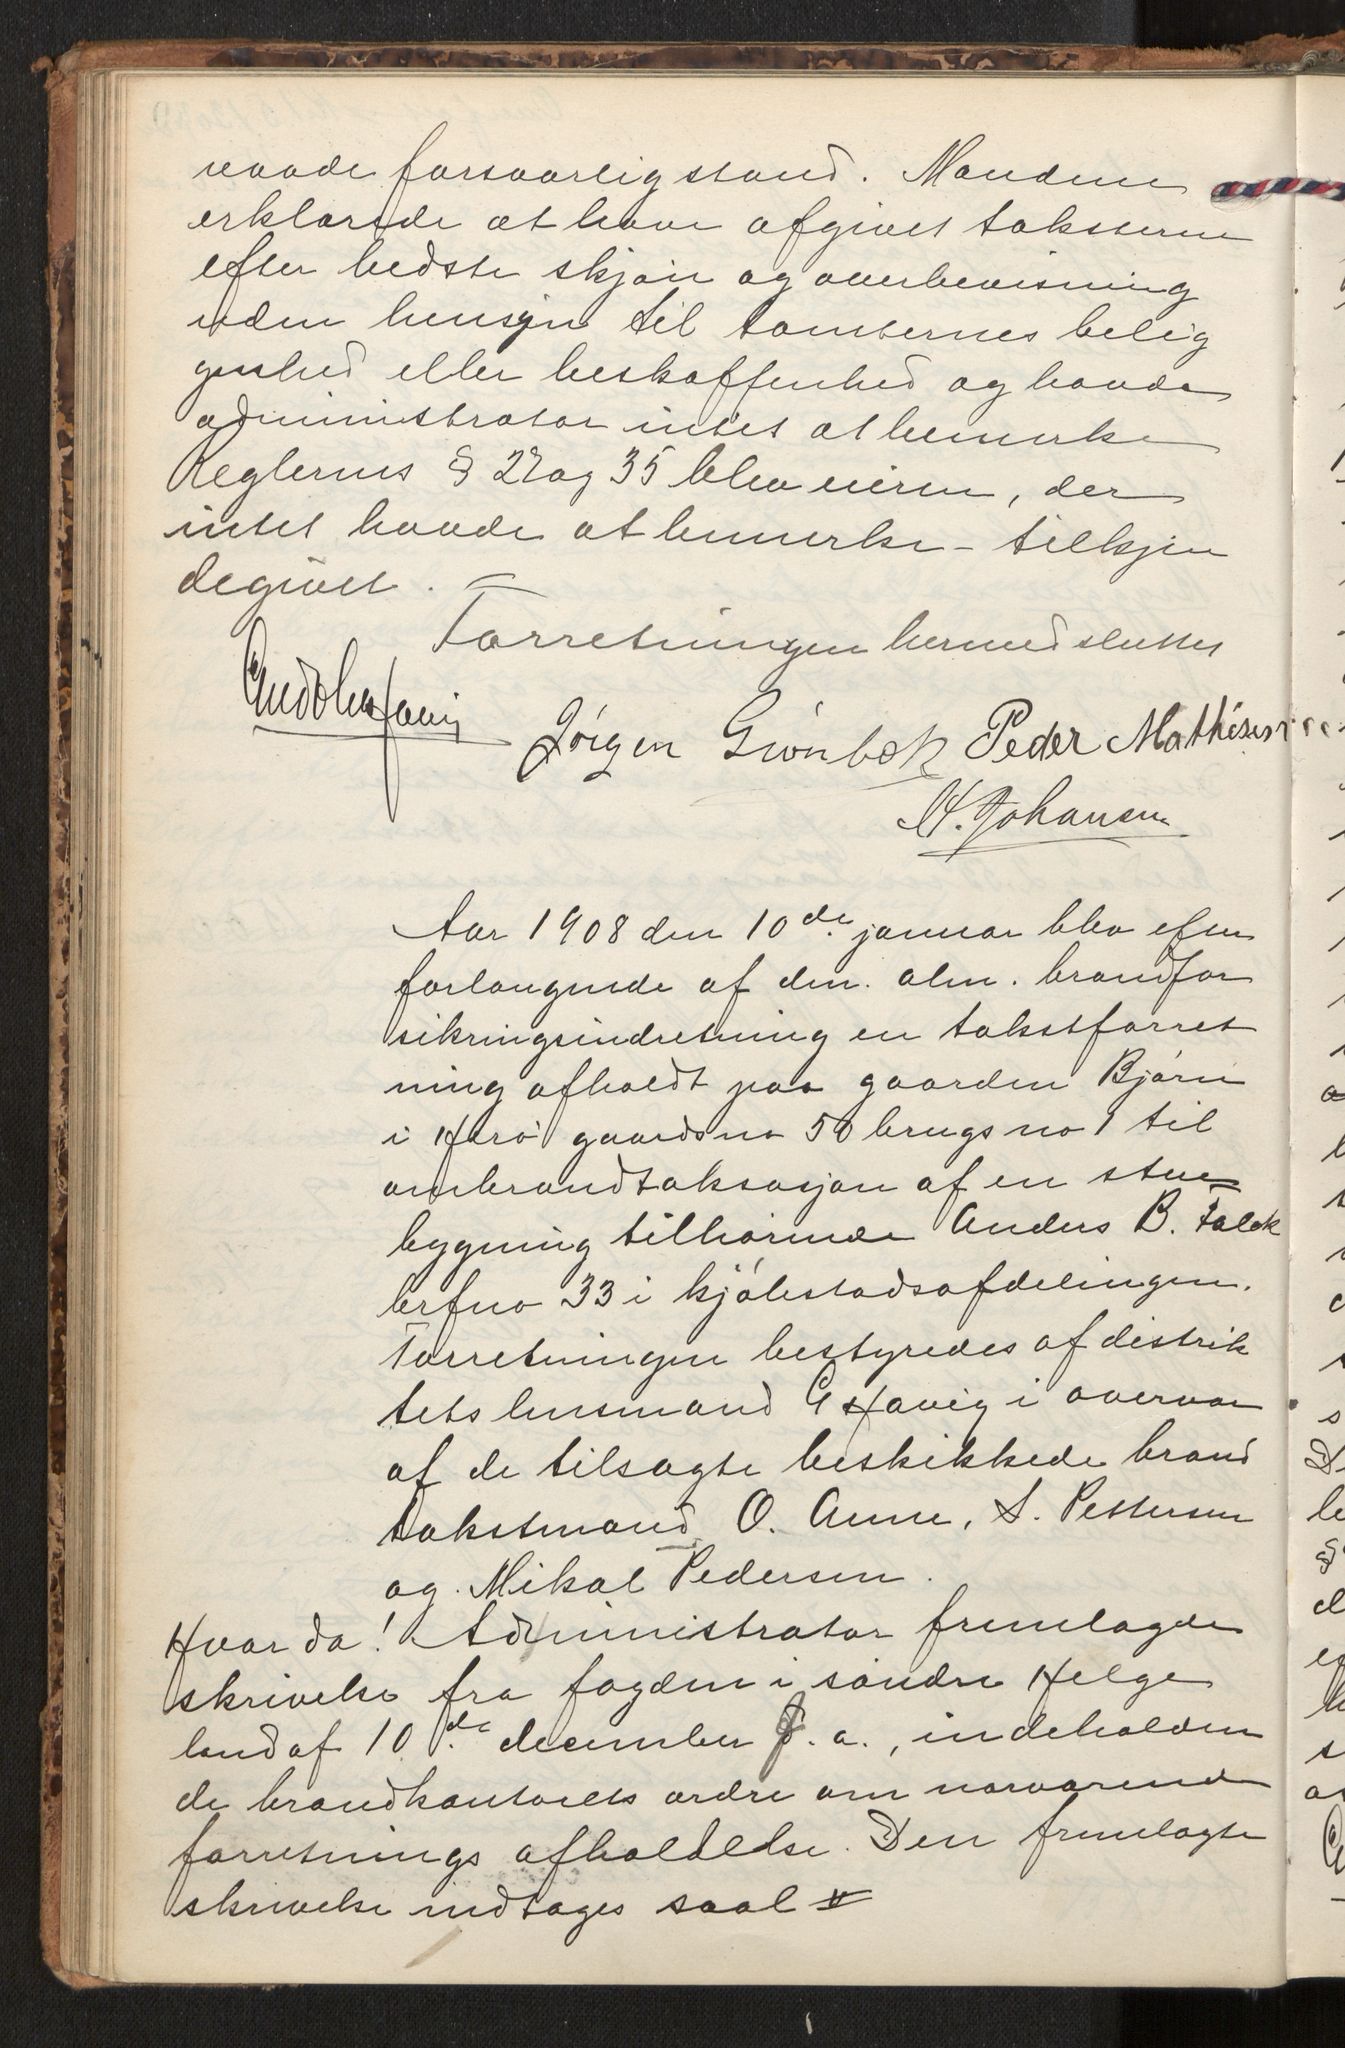 raade forsvarlig stand. Mændene
erklærede at have afgivet taksterne
efter bedste skjøn og overbevisning
uden hensyn til tomternes belig
genhed eller beskaffenhed og havde
administrator intet at bemerke
Reglernes § 27 og 35 blev eieren, der
intet havde at bemerke - tilkjen
degivet.
Forretningen hermed sluttet
Jörgen Grönbek Peder Mathisen
H. Johansen
Aar 1908 den 10de januar blev efter
forlangende af den alm. brandfor
sikringsindretning en takstforret
ning afholdt paa gaarden Bjørn
i Herø gaardsno 50 brugsno 1 til
ombrandtaksasjon af en stue=
bygning tilhørende Anders B. Falck
brfno 33 i kjøbstadsafdelingen.
Forretningen bestyredes af distrik
tets lensmand G Havig i overvær
af de tilsagte beskikkede brand
takstmænd O. Aune, S. Pettersen
og Mikal Pedersen.
Hvorda! Administrator fremlagde
skrivelse fra fogden i søndre Helge
land af 10de december f. a., indeholden
de brandkontorets ordre om nærværende
forretnings afholdelse. Den fremlagte
skrivelse indtages saal